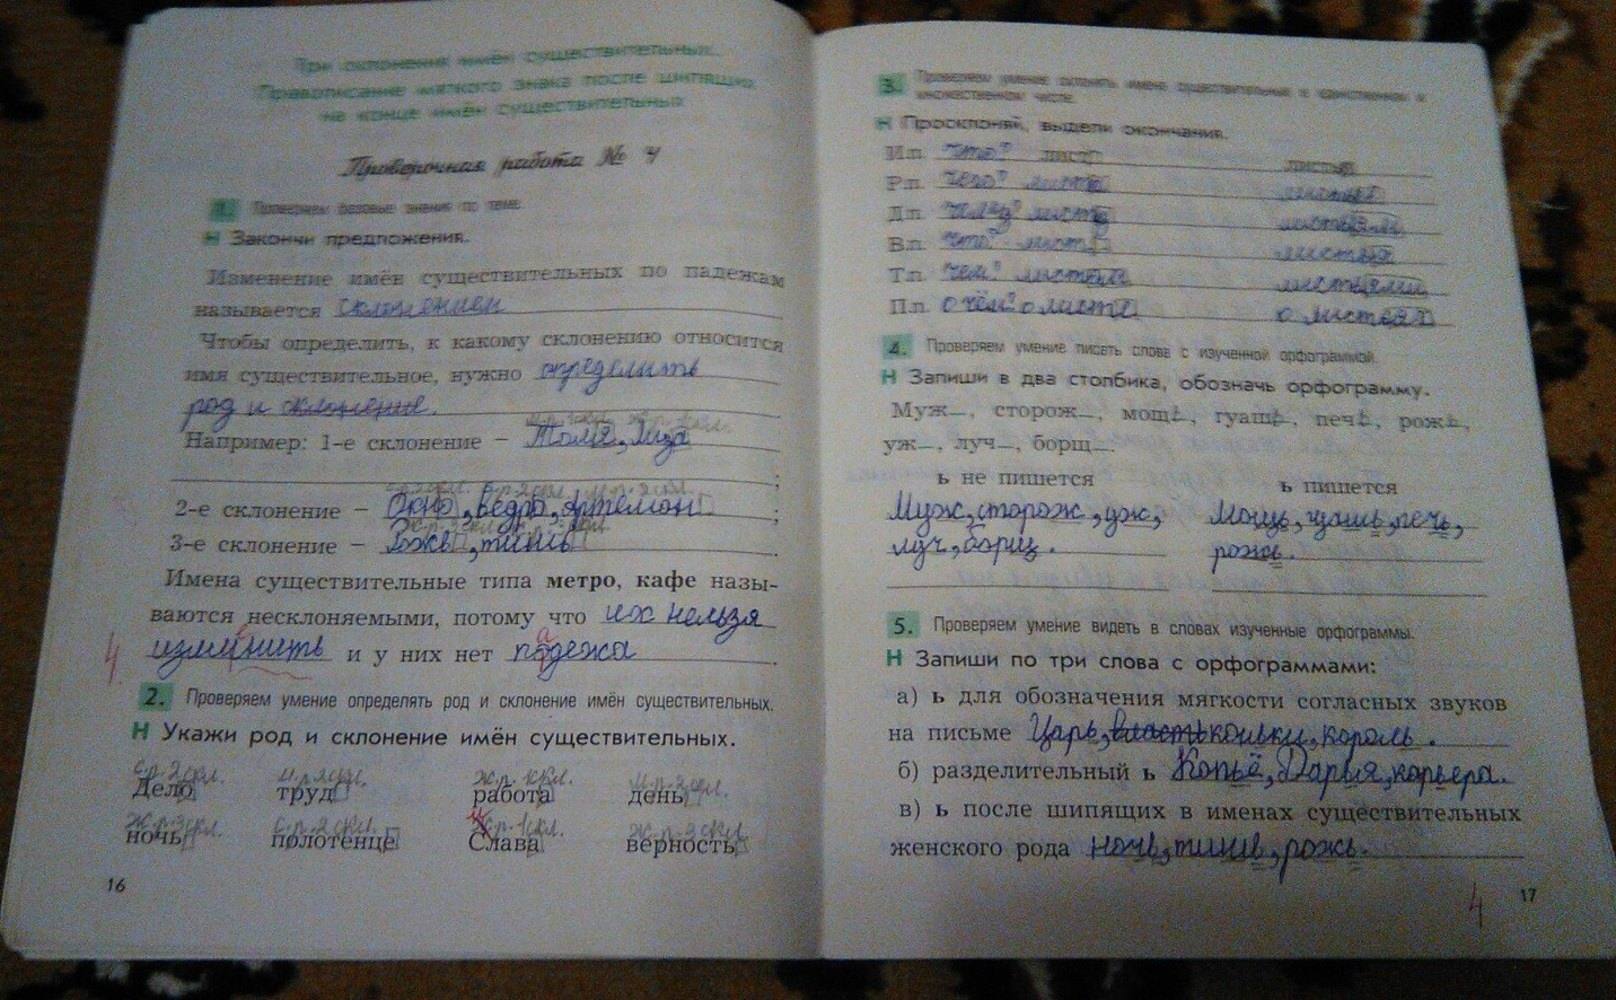 Три склонения имён существительных.
Правописание мягкого знака после шипящих
на конце имён существительных
Проверочная работа № 4
1. Проверяем базовые знания по теме.
Н Закончи предложения.
Изменение имён существительных по падежам
называется склонением
Чтобы определить, к какому склонению относится
имя существительное, нужно определить
род и склонение.
Например: 1-е склонение – Толя, Лиза
;
2-е склонение – Окно, ведро, Артемон ;
3-е склонение – Рожь, тишь .
Имена существительные типа метро, кафе назы-
ваются несклоняемыми, потому что их нельзя
изминить и у них нет подежа .
4
2. Проверяем умение определять род и склонение имён существительных.
Н Укажи род и склонение имён существительных.
с.р. 2 скл. м.р. 2 скл. ж.р. 1 скл. м.р. 2 скл.
Дело труд работа день
ж.р. 3 скл. с.р. 2 скл. р. 1 скл. ж.р. 3 скл.
ночь полотенце Слава верность
16
3. Проверяем умение склонять имена существительные в единственном и
множественном числе.
Н Просклоняй, выдели окончания.
И.п. что? лист листья
Р.п. чего? листа листьев
Д.п. чему? листу листьям
В.п. что? лист листья
Т.п. чем? листом листьями
П.п. о чём? о листе о листьях
4. Проверяем умение писать слова с изученной орфограммой.
Н Запиши в два столбика, обозначь орфограмму.
Муж_, сторож_, мощь, гуашь, печь, рожь,
уж_, луч_, борщ_.
ь не пишется ь пишется
Муж, сторож, уж, Мощь, гуашь, печь,
луч, борщ. рожь.
5. Проверяем умение видеть в словах изученные орфограммы.
Н Запиши по три слова с орфограммами:
а) ь для обозначения мягкости согласных звуков
на письме Царь, власть коньки, король.
б) разделительный ь Копьё, Дарья, карьера.
в) ь после шипящих в именах существительных
женского рода ночь, тишь, рожь.
4
17